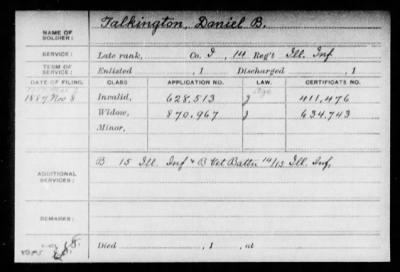 NAME OF SOLDIER: Talkington, Daniel B.
SERVICE: Late rank, Co. I, 14 Reg't Ill. Inf
TERM OF SERVICE: Enlisted , 1 Discharged , 1
DATE OF FILING. CLASS. APPLICATION NO. LAW. CERTIFICATE NO.
1887, Nov 8 Invalid, 628.513 J 411.476
Widow, 870.967 J 634.743
Minor,
ADDITIONAL SERVICES: B 15 Ill. Inf & B Vet Battn 14/15 Ill. Inf,
REMARKS:
Died , 1 , at